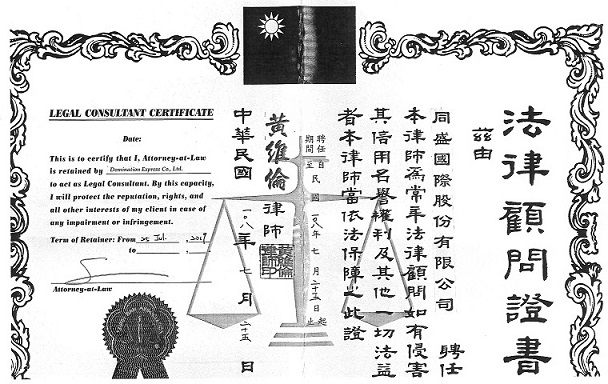 法律顧問證書
茲由
同盛國際股份有限公司 聘任
本律師為常年法律顧問如有侵害
其信用名譽權利及其他一切法益
者本律師當依法保障之此證
聘任期間
自民國一〇八年七月二十五日起
至 止
黃維倫律師
中華民國一〇八年七月二十五日
LEGAL CONSULTANT CERTIFICATE
Date:
This is to certify that I, Attorney-at-Law
is retained by Domination Express Co., Ltd.
to act as Legal Consultant. By this capacity,
I will protect the reputation, rights, and
all other interests of my client in case of
any impairment or infringement.
Term of Retainer: From 25 Jul. , 2019
to ,
Attorney-at-Law